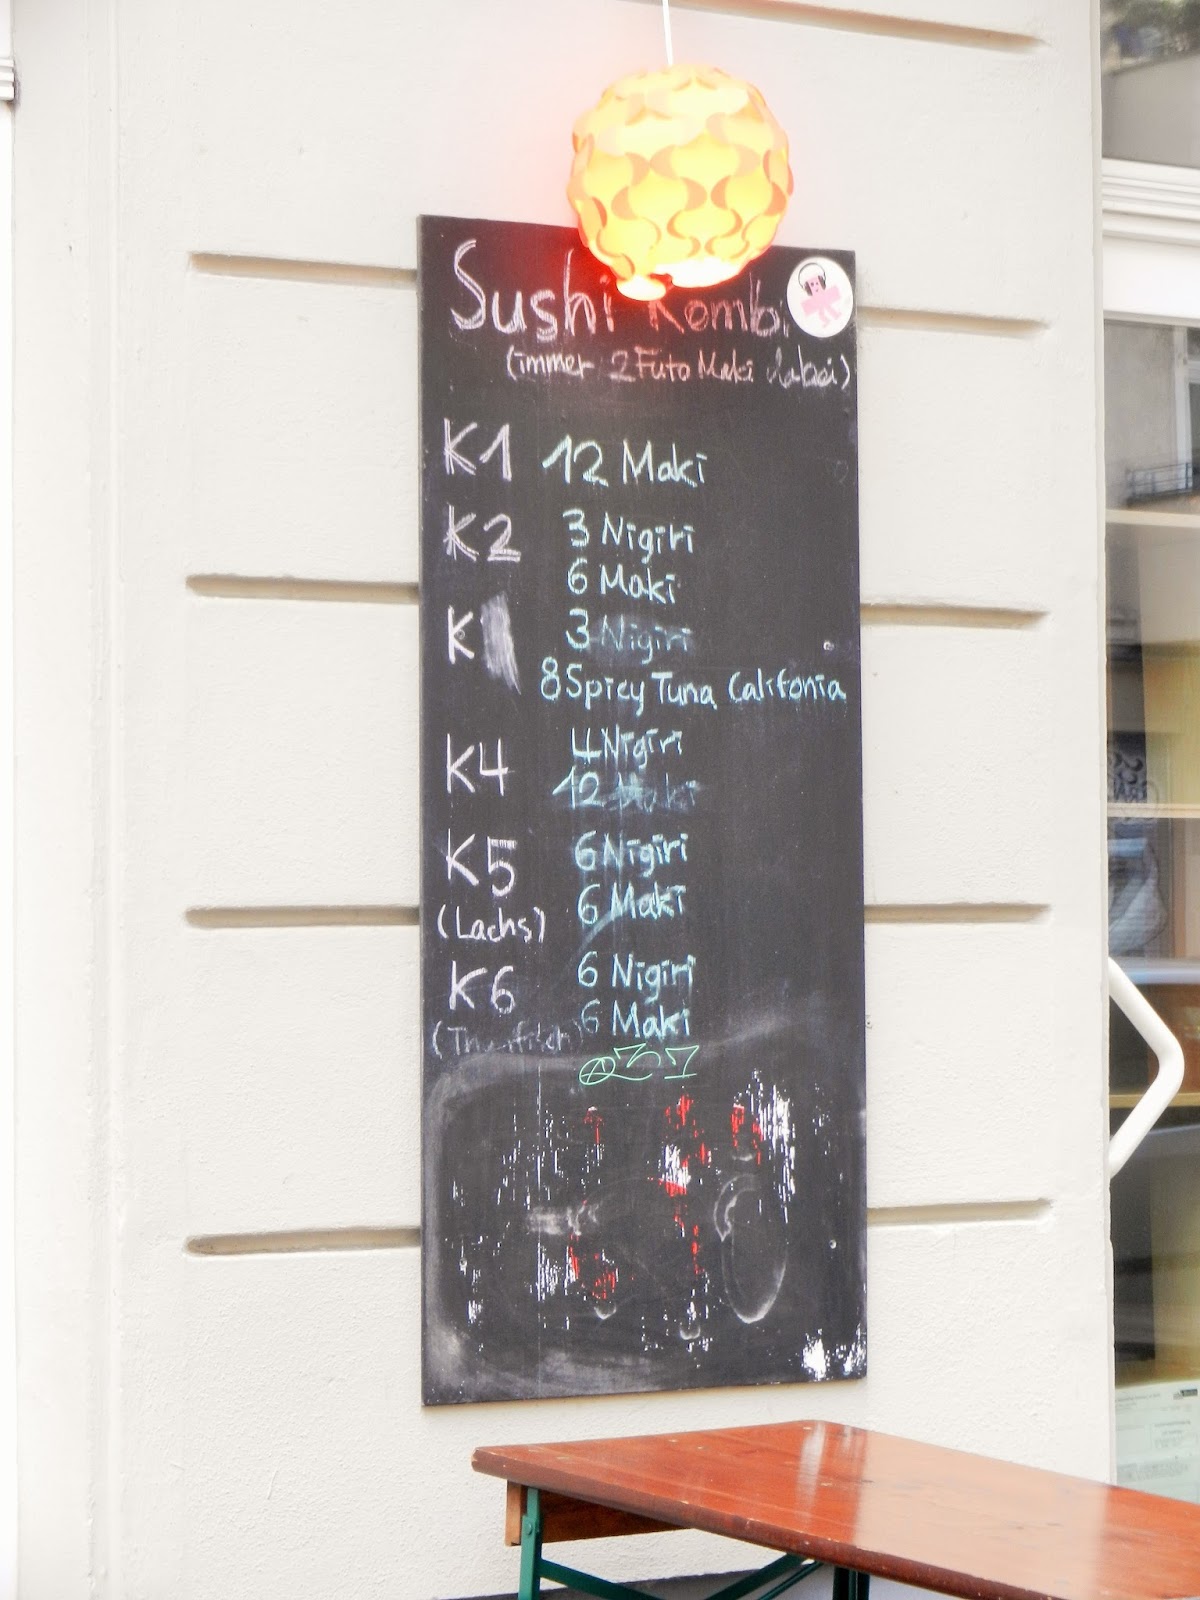 Sushi Kombi
(immer 2 Futo Maki dabei)
K1 12 Maki
K2 3 Nigiri
6 Maki
K 3 Nigiri
8 Spicy Tuna Califonia
K4 4 Nigiri
12 Maki
K5 6 Nigiri
(Lachs) 6 Maki
K6 6 Nigiri
(Thunfisch) 6 Maki